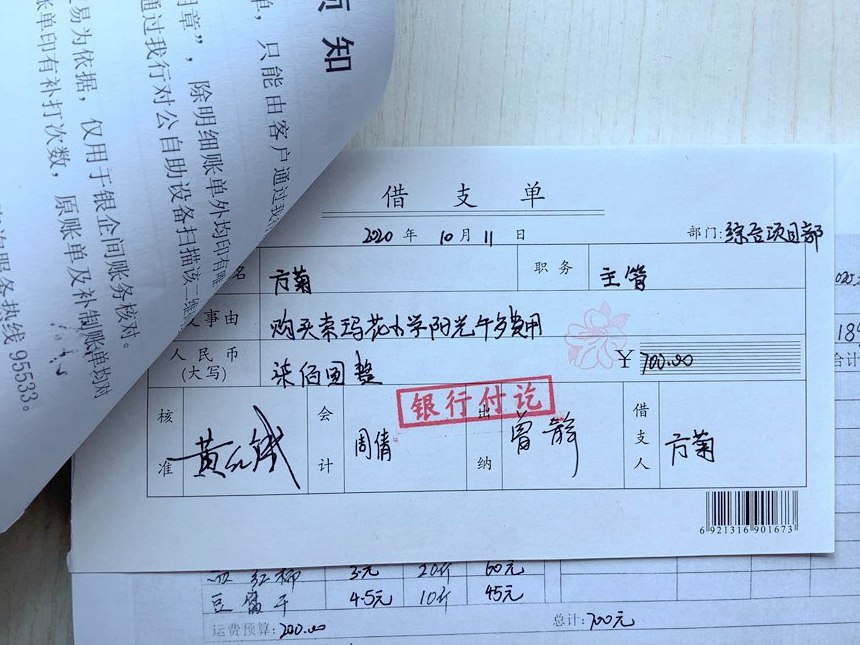 须知
单，只能由客户通过我
用章”，除明细账单外均印有
通过我行对公自助设备扫描该二维
易为依据，仅用于银企间账务核对。
账单印有补打次数，原账单及补制账单均对
咨询服务热线 95533。
借支单
2020 年 10 月 11 日
部门: 综合项目部
名 方菊 职务 主管
事由 购买索玛花小学阳光午餐费用
人民币(大写) 柒佰圆整 ¥ 700.00
银行付讫
核准 会计 周倩 出纳 曾静 借支人 方菊
6 921316 901673
西红柿 3元 20斤 60元
豆腐干 4.5元 10斤 45元
运费预算: 200.00 总计: 700元
合计